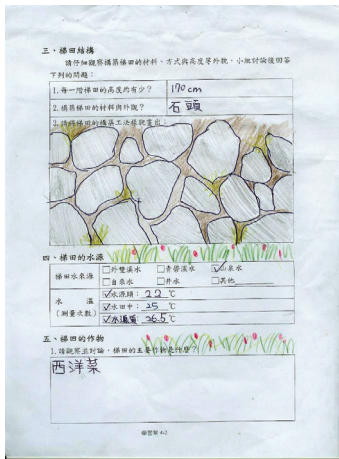 三、梯田結構
請仔細觀察構築梯田的材料、方式與高度等外貌,小組討論後回答
下列的問題:
1.每一階梯田的高度約有多少? 170cm
2.構築梯田的材料與外觀? 石頭
3.請將梯田的構築工法樣貌畫出:
四、梯田的水源
梯田水來源 □外雙溪水 □青礐溪水 ☑山泉水
□自來水 □井水 □其他
水溫 ☑水源頭:22℃
(測量次數) ☑水田中:25℃
☑水溫質 26.5℃
五、梯田的作物
1.請觀察並討論,梯田的主要作物是什麼?
西洋菜
學習單 4-2